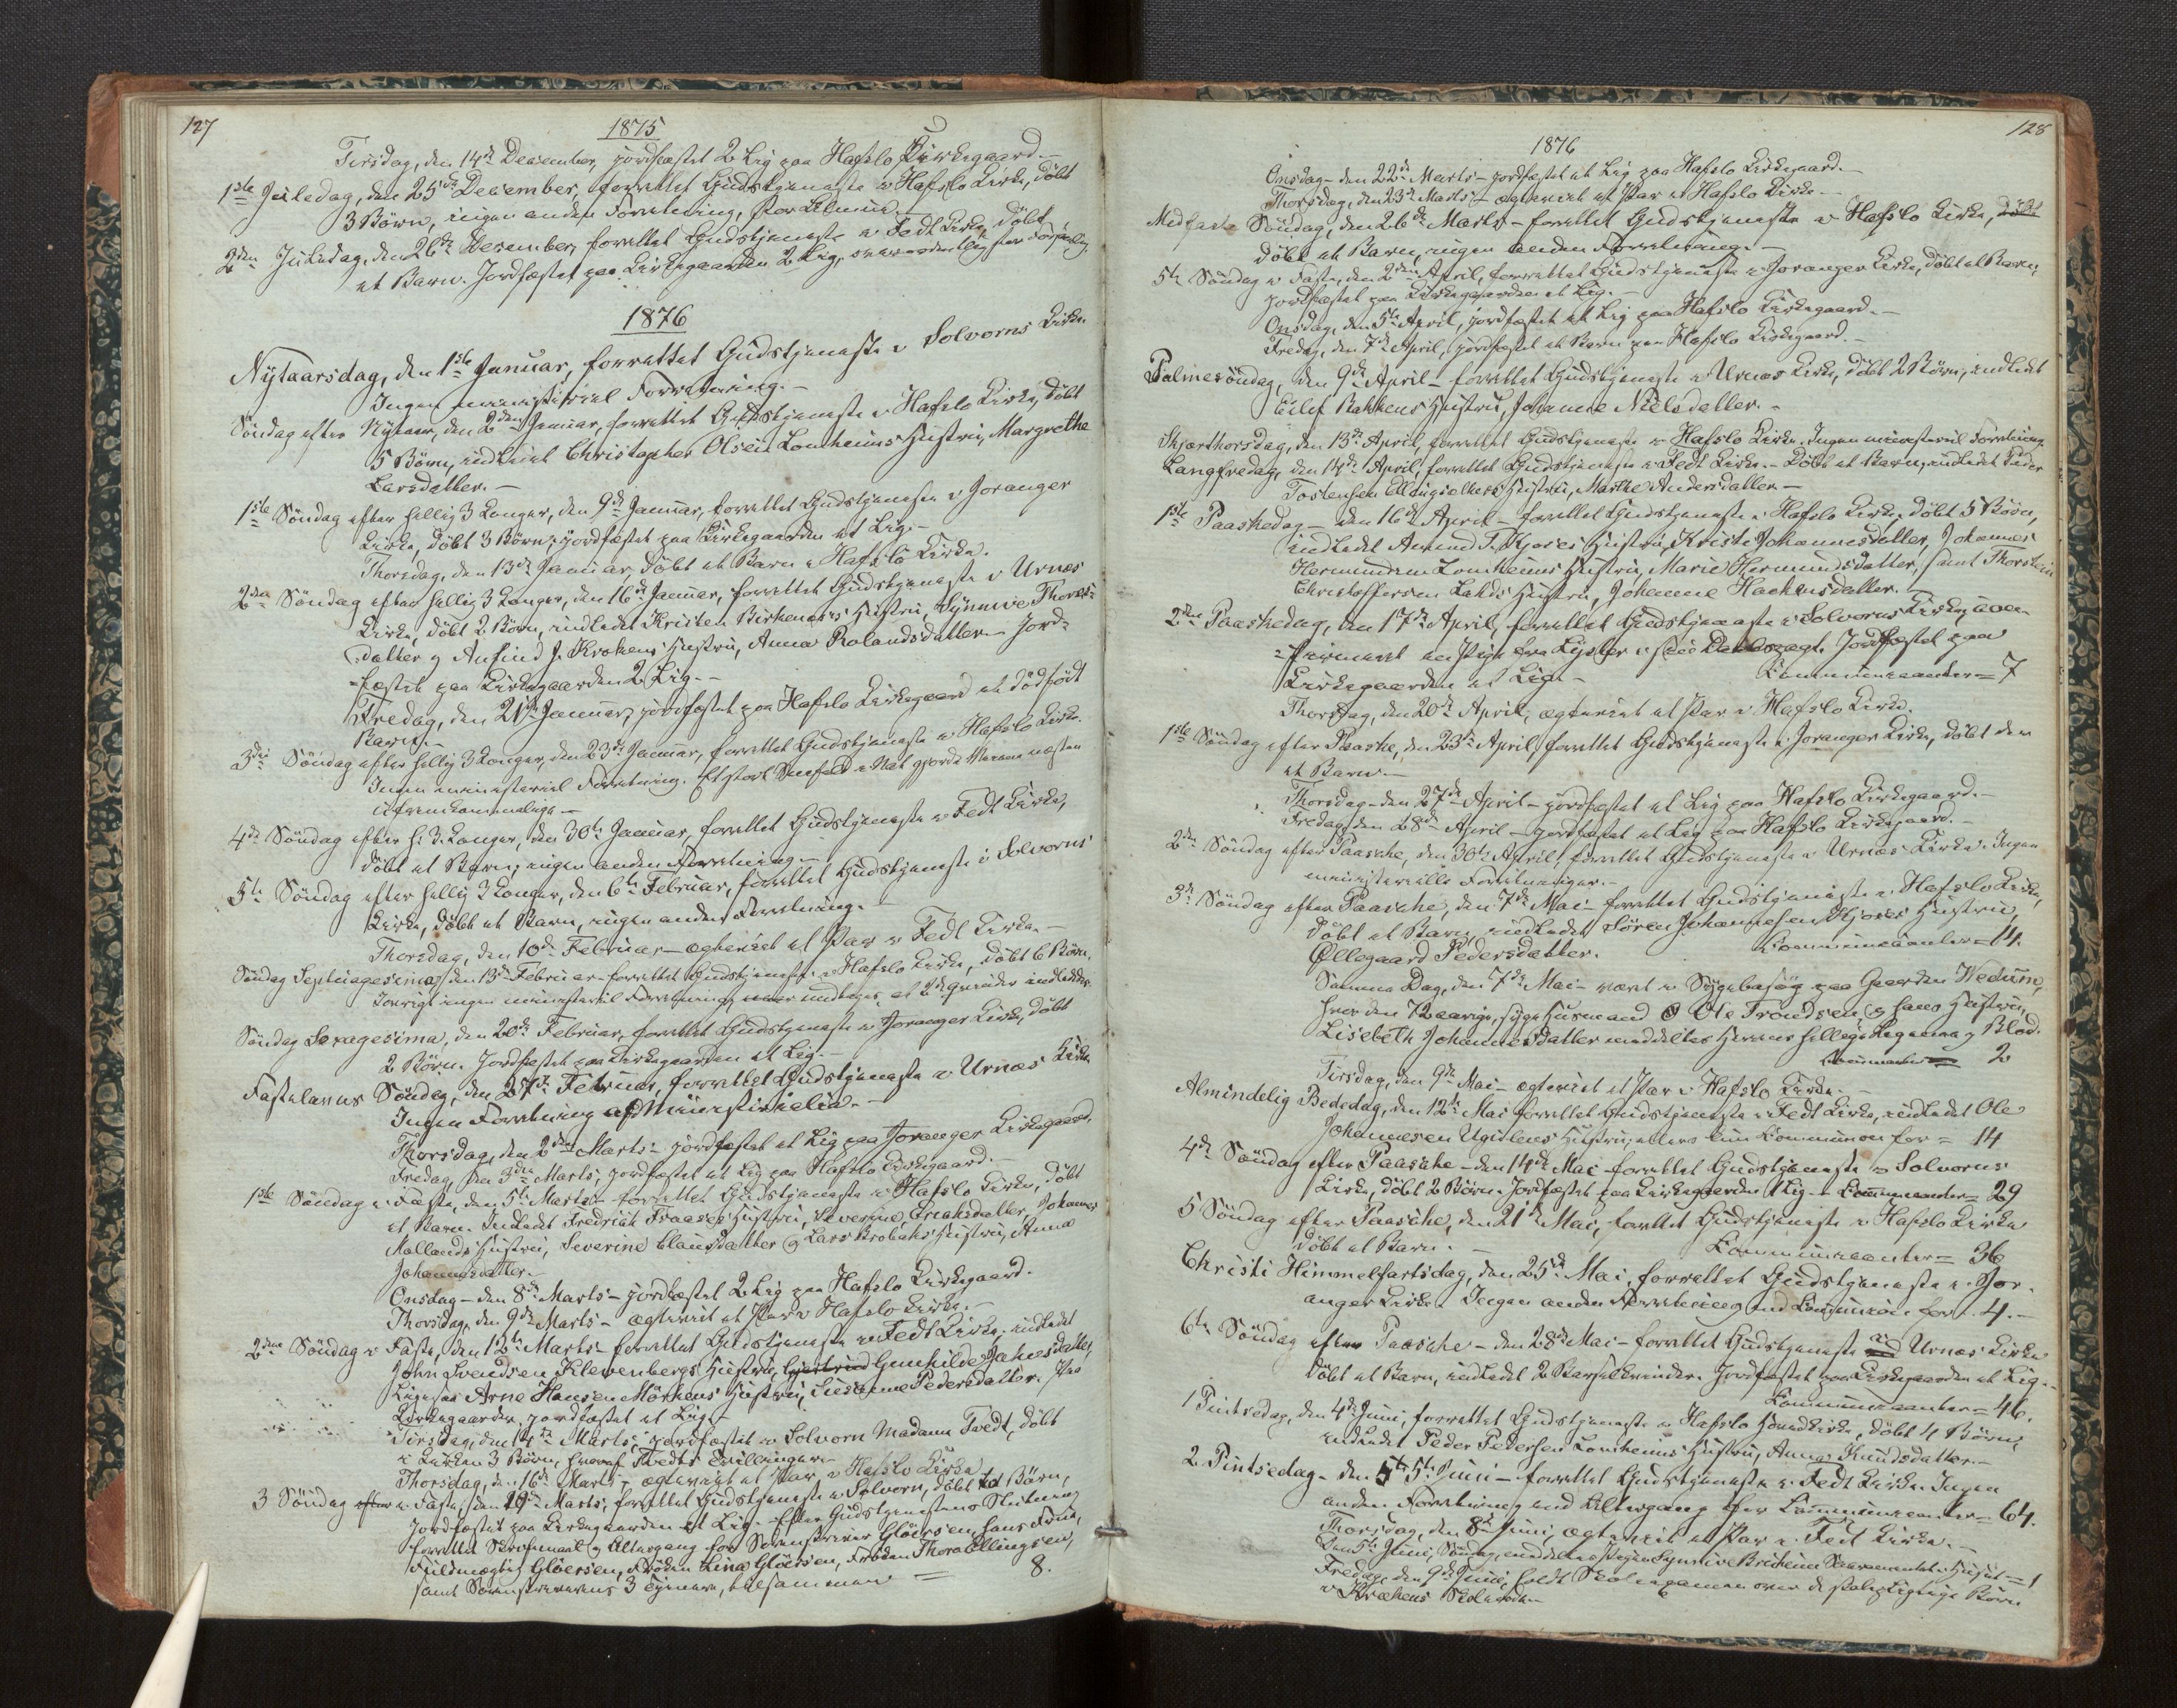 127
1875
Tirsdag, den 14de December, jordfæstet 2 Lig paa Hafslo Kirkegaard.-
1ste Juledag, den 25de December, forrettet Gudstjeneste i Hafslo Kirke, döbt
3 Börn, ingen anden Forretning,
2den Juledag, den 26de December, forrettet Gudstjeneste i Fedt Kirke, döbt
et Barn. Jordfæstet paa Kirkegaarden 2 Lig,
1876
Nytaarsdag, den 1ste Januar, forrettet Gudstjeneste i Solvorns Kirke.
Ingen ministeriel Forretning.-
Söndag efter Nytaar, den 2den Januar, forrettet Gudstjeneste i Hafslo Kirke, döbt
5 Börn, indledet Christopher Olsen Lomheims Hustru, Margrethe
Larsdatter.-
1ste Söndag efter hellig 3 Konger, den 9de Januar, forrettet Gudstjeneste i Joranger
Kirke, döbt 3 Börn, jordfæstet paa Kirkegaarden et Lig.-
Thorsdag, den 13de Januar, döbt et Barn i Hafslo Kirke.
2den Söndag efter hellig 3 Konger, den 16de Januar, forrettet Gudstjeneste i Urnæs
Kirke, döbt 2 Börn, indledet Kristen Birkenæs's Hustru, Synneve Thores-
datter og Anfind J. Krokens Hustru, Anna Rolandsdatter. Jord-
fæstet paa Kirkegaarden 2 Lig.-
Fredag, den 21de Januar, jordfæstet paa Hafslo Kirkegaard et dödfödt
Barn.-
3die Söndag efter hellig 3 Konger, den 23de Januar, forrettet Gudstjeneste i Hafslo Kirke.
Ingen ministeriel Forretning. Et stort Snefald i Nat gjorde Veiene næsten
ufremkommelige.-
4de Söndag efter h. 3 Konger, den 30te Januar, forrettet Gudstjeneste i Fedt Kirke,
döbt et Barn, ingen anden Forretning.-
5te Söndag efter hellig 3 Konger, den 6te Februar, forrettet Gudstjeneste i Solvorns
Kirke, döbt et Barn, ingen anden Forretning.-
Thorsdag, den 10de Februar - ægteviet et Par i Fedt Kirke.-
Söndag Septuagesima, den 13de Februar - forrettet Gudstjeneste i Hafslo Kirke, döbt 6 Börn,
Iövrigt ingen ministeriel Forretning, undtagen, at 2de Qvinder indlededes.
Söndag Sexagesima, den 20de Februar, forrettet Gudstjeneste i Joranger Kirke, döbt
2 Börn. Jordfæstet paa Kirkegaarden et Lig.-
Fastelavns Söndag, den 27de Februar, forrettet Gudstjeneste i Urnæs Kirke
Ingen Forretning af Ministerialia.-
Thorsdag, den 2den Marts - jordfæstet et Lig paa Joranger Kirkegaard,
Fredag, den 3die Marts, jordfæstet et Lig paa Hafslo Kirkegaard.-
1ste Söndag i Faste, den 5te Marts - forrettet Gudstjeneste i Hafslo Kirke, döbt
et Barn. Indledet Fredrik Fraases Hustru, Severine Eriksdatter, Johannes
Mollands Hustru, Severine Clausdatter og Lars Brobaks Hustru, Anna
Johannesdatter.
Onsdag - den 8de Marts - jordfæstet 2 Lig paa Hafslo Kirkegaard.
Thorsdag, den 9de Marts - ægteviet et Par i Hafslo Kirke.-
2den Söndag i Faste, den 12te Marts - forrettet Gudstjeneste i Fedt Kirke, indledet
John Svendsen Klevenbergs Hustru, Gunhilde Johnsdatter,
Ligesaa Arne Hansen Mörkens Hustru, Susanne Pedersdatter. Paa
Kirkegaarden jordfæstet et Lig.-
Tirsdag, den 14de Marts, jordfæstet i Solvorn Madame Tvedt, döbt
i Kirken 3 Börn, hvoraf Tvedts Tvillinger.-
Thorsdag, den 16de Marts, ægteviet et Par i Hafslo Kirke
3 Söndag efter i Faste, den 19de Marts, forrettet Gudstjeneste i Solvorn, döbt to Börn,
Jordfæstet paa Kirkegaarden et Lig. - Efter Gudstjenestens Slutning
forrettet Skriftemaal og Altergang for Sorenskriver Gløersen, hans Frue,
Fuldmægtig Gløersen, Fröken Lina Gløersen, Fröken Thora Ellingsen,
samt Sorenskriverens 3 Tjenere, tilsammen = 8.
128
1876
Onsdag - den 22de Marts - jordfæstet et Lig paa Hafslo Kirkegaard.-
Thorsdag, den 23de Marts - ægteviet et Par i Hafslo Kirke.-
Midfaste Söndag, den 26de Marts - forrettet Gudstjeneste i Hafslo Kirke, döbt
döbt et Barn, ingen anden Forretning.-
5te Söndag i Faste, den 2den April, forrettet Gudstjeneste i Joranger Kirke, döbt et Barn,
jordfæstet paa Kirkegaarden et Lig.-
Onsdag, den 5te April, jordfæstet et Lig paa Hafslo Kirkegaard.-
Fredag, den 7de April, jordfæstet et Barn paa Hafslo Kirkegaard.-
Palmesöndag, den 9de April - forrettet Gudstjeneste i Urnæs Kirke, döbt 2 Börn, indledet
Eilef Bakkens Hustru, Johanne Nielsdatter.-
Skjærthorsdag, den 13de April, forrettet Gudstjeneste i Hafslo Kirke. Ingen ministeriel Forretning.
Langfredag, den 14de April, forrettet Gudstjeneste i Fedt Kirke. - Döbt et Barn, indledet Peder
Tostensen Hustru, Marthe Andersdatter.-
1ste Paaskedag - den 16de April - forrettet Gudstjeneste i Hafslo Kirke, döbt 5 Börn,
indledet Amund T. Kjoses Hustru, Kristi Johannesdatter, Johannes
Hermundsen Lomheims Hustru, Marie Hermundsdatter, samt Thorstein
Christoffersen Hustru, Johanne Haakensdatter.
2den Paaskedag, den 17de April, forrettet Gudstjeneste i Solvorns Kirke,
firmeret en Pige fra Lyster i sin Daabspagt. Jordfæstet paa
Kirkegaarden et Lig.- Kommunicanter = 7
Thorsdag, den 20de April, ægteviet et Par i Hafslo Kirke.
1ste Söndag efter Paaske, den 23de April, forrettet Gudstjeneste i Joranger Kirke, döbt der
et Barn.-
Thorsdag - den 27de April - jordfæstet et Lig paa Hafslo Kirkegaard.-
Fredag, den 28de April - jordfæstet et Lig paa Hafslo Kirkegaard.-
2den Söndag efter Paasche, den 30te April, forrettet Gudstjeneste i Urnæs Kirke. Ingen
ministerielle Forretninger.-
3de Söndag efter Paasche, den 7de Mai - forrettet Gudstjeneste i Hafslo Kirke,
Döbt et Barn, indledet Sören Johannesen Kjoses Hustru,
Øllegaard Pedersdatter. Kommunicanter = 14.
Samme Dag, den 7de Mai - været i Sygebesøg paa Gaarden Wedum,
hvor den 72aarige, syge Husmand Ole Trondsen, og hans Hustru,
Lisebeth Johannesdatter meddeltes Herrens hellige Legeme og Blod.
Kommunicanter = 2
Tirsdag, den 9de Mai - ægteviet et Par i Hafslo Kirke.-
Almindelig Bededag, den 12te Mai forrettet Gudstjeneste i Fedt Kirke, indledet Ole
Johannesen Ugulens Hustru, ellers kun Kommunion for = 14
4de Söndag efter Paasche - den 14de Mai - forrettet Gudstjeneste i Solvorns
Kirke, döbt 2 Börn. Jordfæstet paa Kirkegaarden 1 Lig - Kommunicanter = 29
5 Söndag efter Paasche, den 21de Mai, forrettet Gudstjeneste i Hafslo Kirke
Döbt et Barn.- Kommunicanter = 36
Christi Himmelfartsdag, den 25de Mai, forrettet Gudstjeneste i Jor-
anger Kirke. Ingen anden Forretning end Kommunion for = 4.-
6te Söndag efter Paasche - den 28de Mai - forrettet Gudstjeneste i Urnæs Kirke
Döbt et Barn, indledet 2 Barselkvinder. Jordfæstet paa Kirkegaarden et Lig.-
Kommunicanter = 46.
1 Pintsedag, den 4de Juni, forrettet Gudstjeneste i Hafslo Hovedkirke, döbt 4 Börn,
indledet Peder Pedersen Lomheims Hustru, Anna Knudsdatter.-
2 Pintsedag - den 5te Juni - forrettet Gudstjeneste i Fedt Kirke. Ingen
anden Forretning end Altergang for Kommunicanter = 64.
Thorsdag, den 8de Juni, ægteviet et Par i Fedt Kirke.-
Den 5te Juni, Söndag, meddeltes Pigen Synneve Sacramentet i Huset = 1
Fredag, den 9de Juni, holdt Skoleexamen over de skolepligtige Börn
i Krokens Skolekreds.-